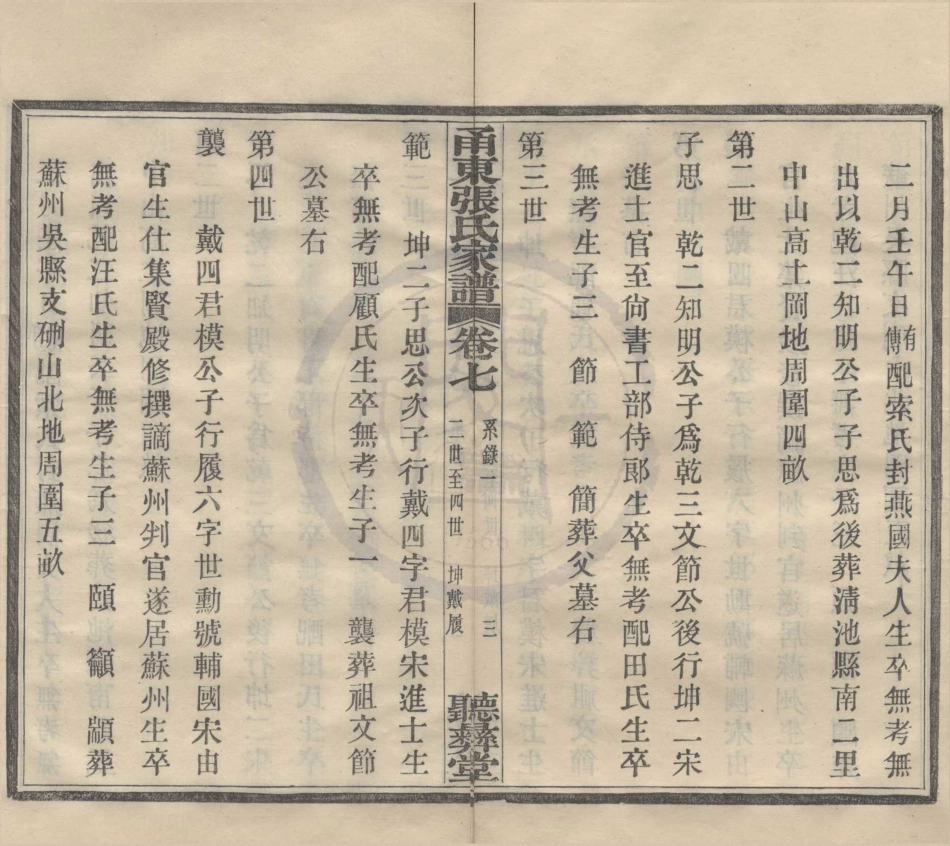 二月壬午日有傳配索氏封燕國夫人生卒無考無
出以乾二知明公子子思爲後葬淸池縣南二里
中山高土岡地周圍四畝
第二世
子思 乾二知明公子爲乾三文節公後行坤二宋
進士官至尙書工部侍郎生卒無考配田氏生卒
無考生子三 節 範 簡葬父墓右
第三世
甬東張氏家譜 卷七 系錄一 二世至四世 坤戴履 三 聽彝堂
範 坤二子思公次子行戴四字君模宋進士生
卒無考配顧氏生卒無考生子一 襲葬祖文節
公墓右
第四世
襲 戴四君模公子行履六字世勳號輔國宋由
官生仕集賢殿修撰謫蘇州判官遂居蘇州生卒
無考配汪氏生卒無考生子三 頤 籲 顓葬
蘇州吳縣支硎山北地周圍五畝